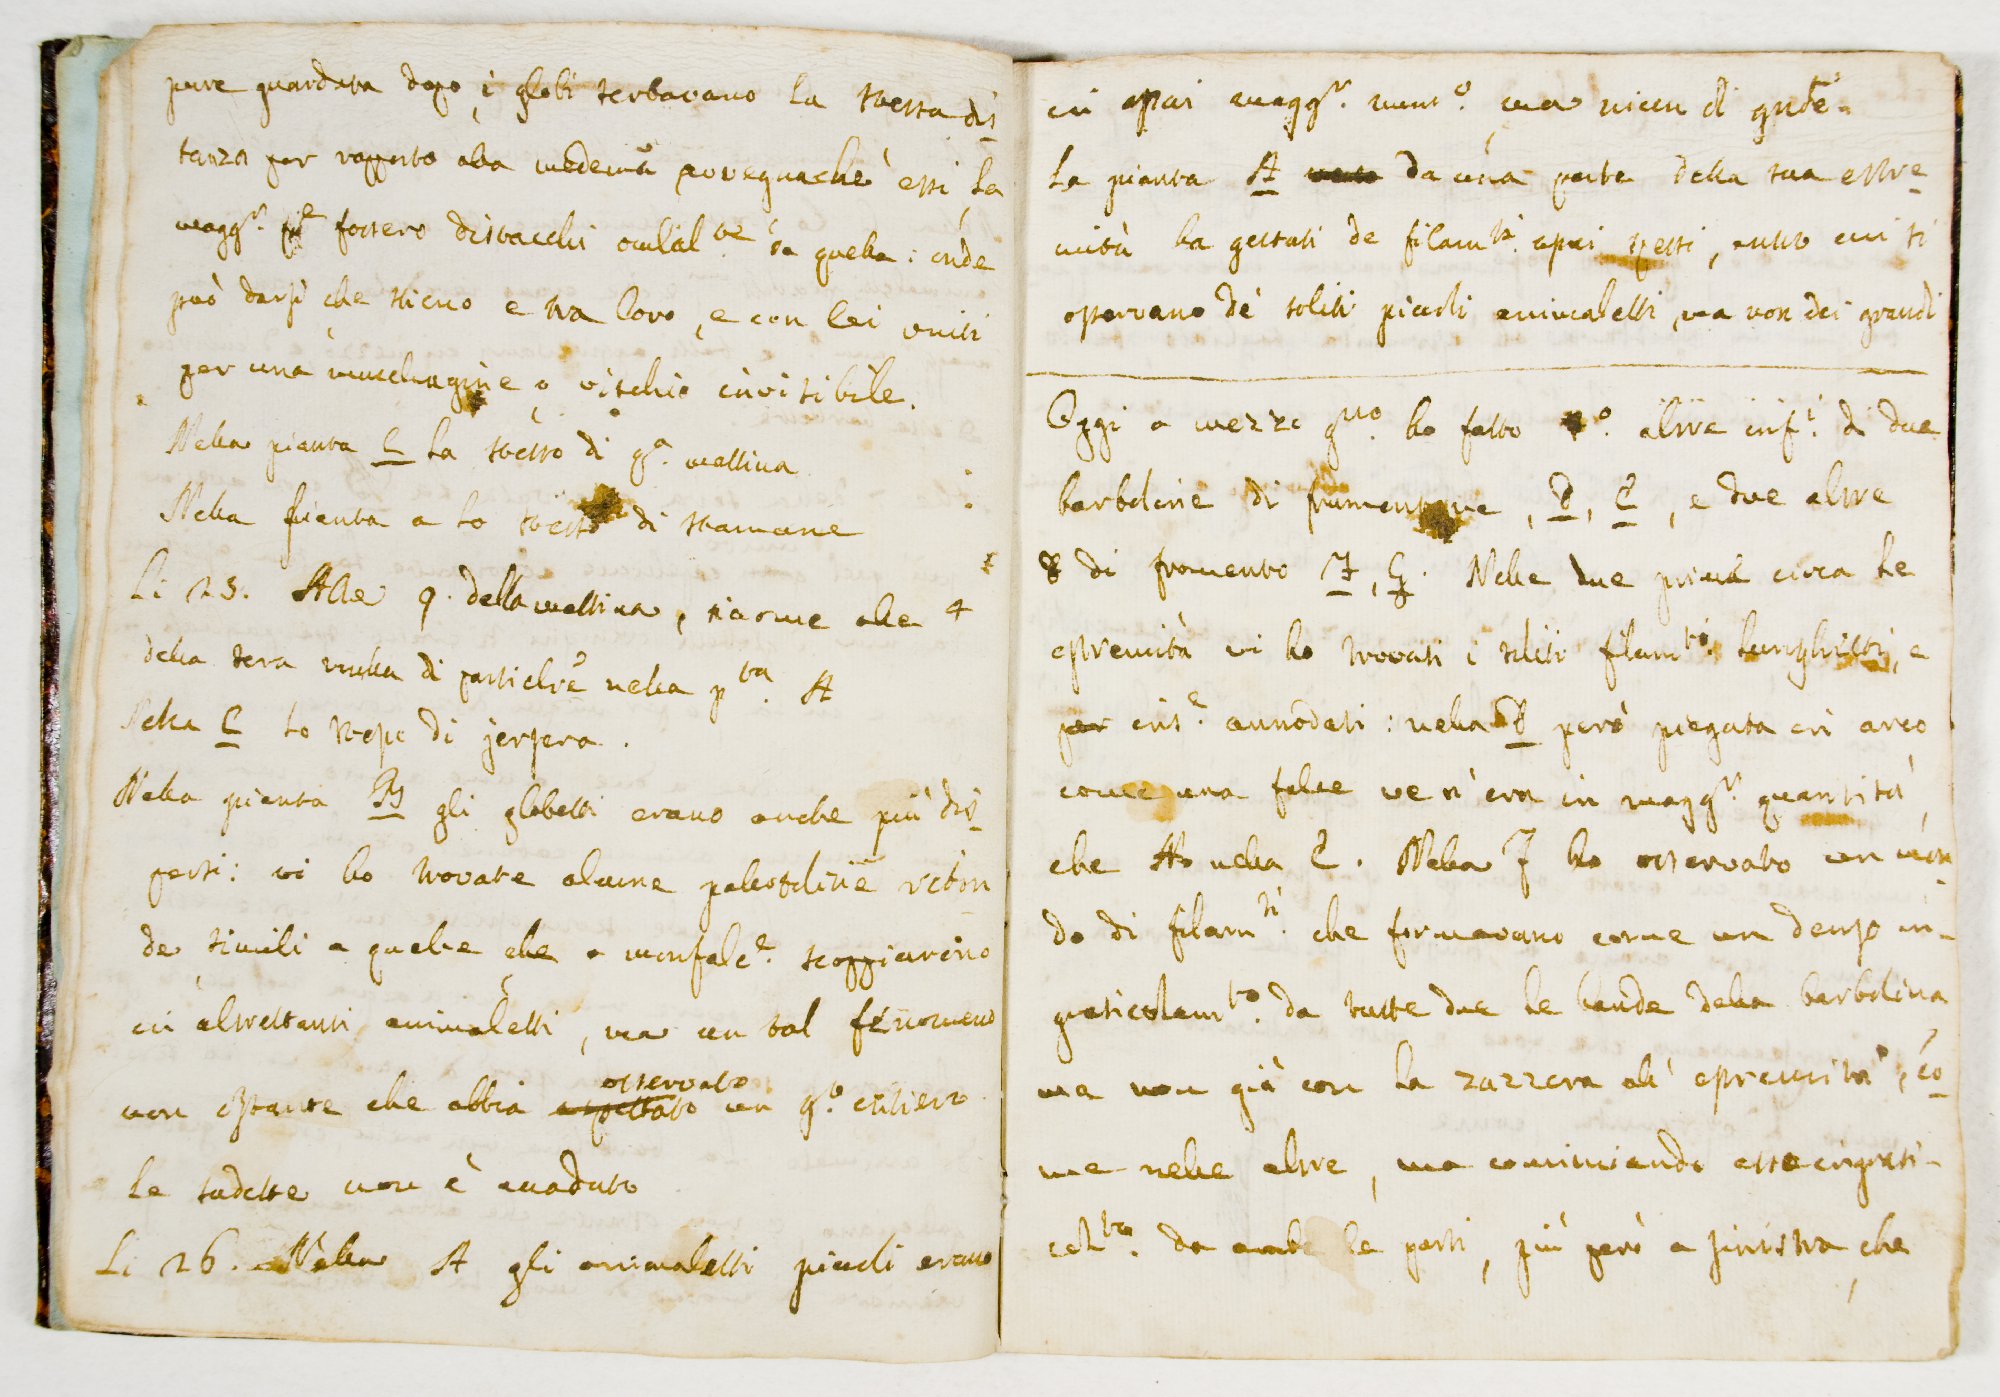 pure guardata dopo, i globi serbavano la stessa di
stanza per rapporto alla medema avvegnachè essi la
magg.r pte fossero distacchi ocul.te da quella: onde
può darsi che sieno e tra loro, e con lei uniti
per una muschagine o vischio invisibile.
Nella pianta C la stesso di q.a mattina
Nella pianta a lo stesso di stamane
Li 25. Alle 9. della mattina, siccome alle 4
della sera nulla di particolre nella p.ta A
Nella C lo stesso di jersera.
Nella pianta B gli globetti erano anche più dis
persi: vi ho trovate alcune pallottoline roton
de simili a quelle che a monfalc.e scoppiarono
in altrettanti animaletti, ma un tal fenomeno
non ostante che abbia aspettato osservato un g.o intiero
le sudette non è accaduto
Li 26. Nella A gli animaletti piccoli erano
in assai magg.r num.o, ma niun di gnde.
La pianta A da una parte della sua estre
mità ha gettati de filam.ti assai spessi, entro cui si
osservano dè soliti piccoli animaletti, ma non dei grandi
Oggi a mezzo g.no ho fatto altre inf.i di due
barboline di frumentone, D, E, e due altre
di fromento F, G. Nelle due prime circa le
estremità vi ho trovati i soliti filam.ti lunghissi, e
per ins.e annodati: nella D però piegata in arco
come una falce ve n'era in magg.r quantità,
che nella E. Nella F ho osservato un mon
do di filam.ti che formavano come un denso in-
graticolam.to da tutte due le bande della barbolina
ma non già con la zazzera all'estremità, co
me nelle altre, ma cominciando esso ingrati-
col.to da ambe le parti, più però a sinistra, che